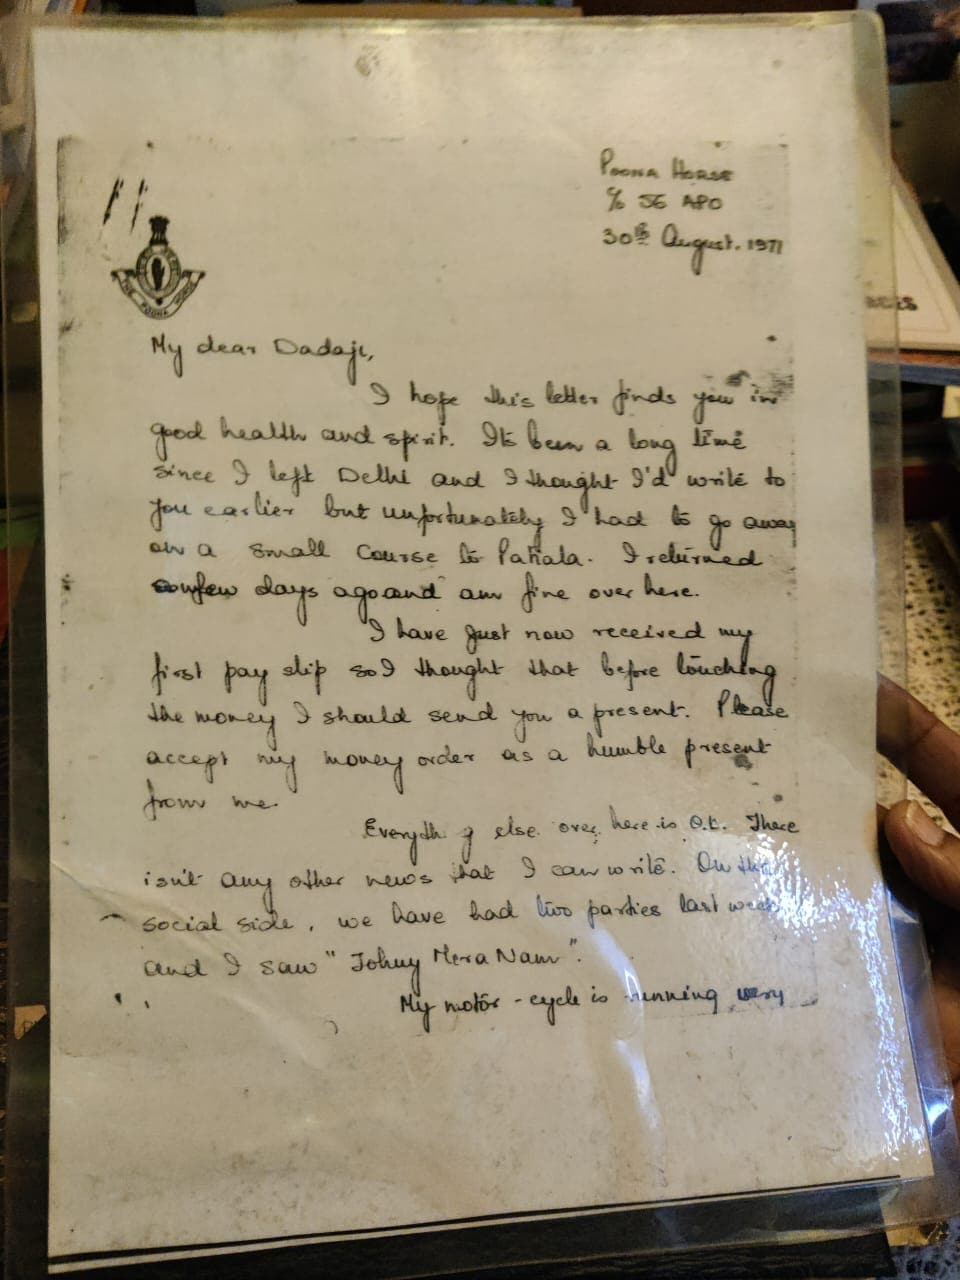 POONA HORSE
c/o 56 APO
30th August. 1971
THE POONA HORSE
My dear Dadaji,
I hope this letter finds you in
good health and spirit. Its been a long time
since I left Delhi and I thought I'd write to
you earlier but unfortunately I had to go away
on a small course to Patiala. I returned
few days ago and am fine over here.
I have just now received my
first pay slip so I thought that before touching
the money I should send you a present. Please
accept my money order as a humble present
from me.
Everyth g else over here is O.K. There
isn't any other news that I can write. On the
social side, we have had two parties last week
and I saw "Johny Mera Nam".
My motor-cycle is running very